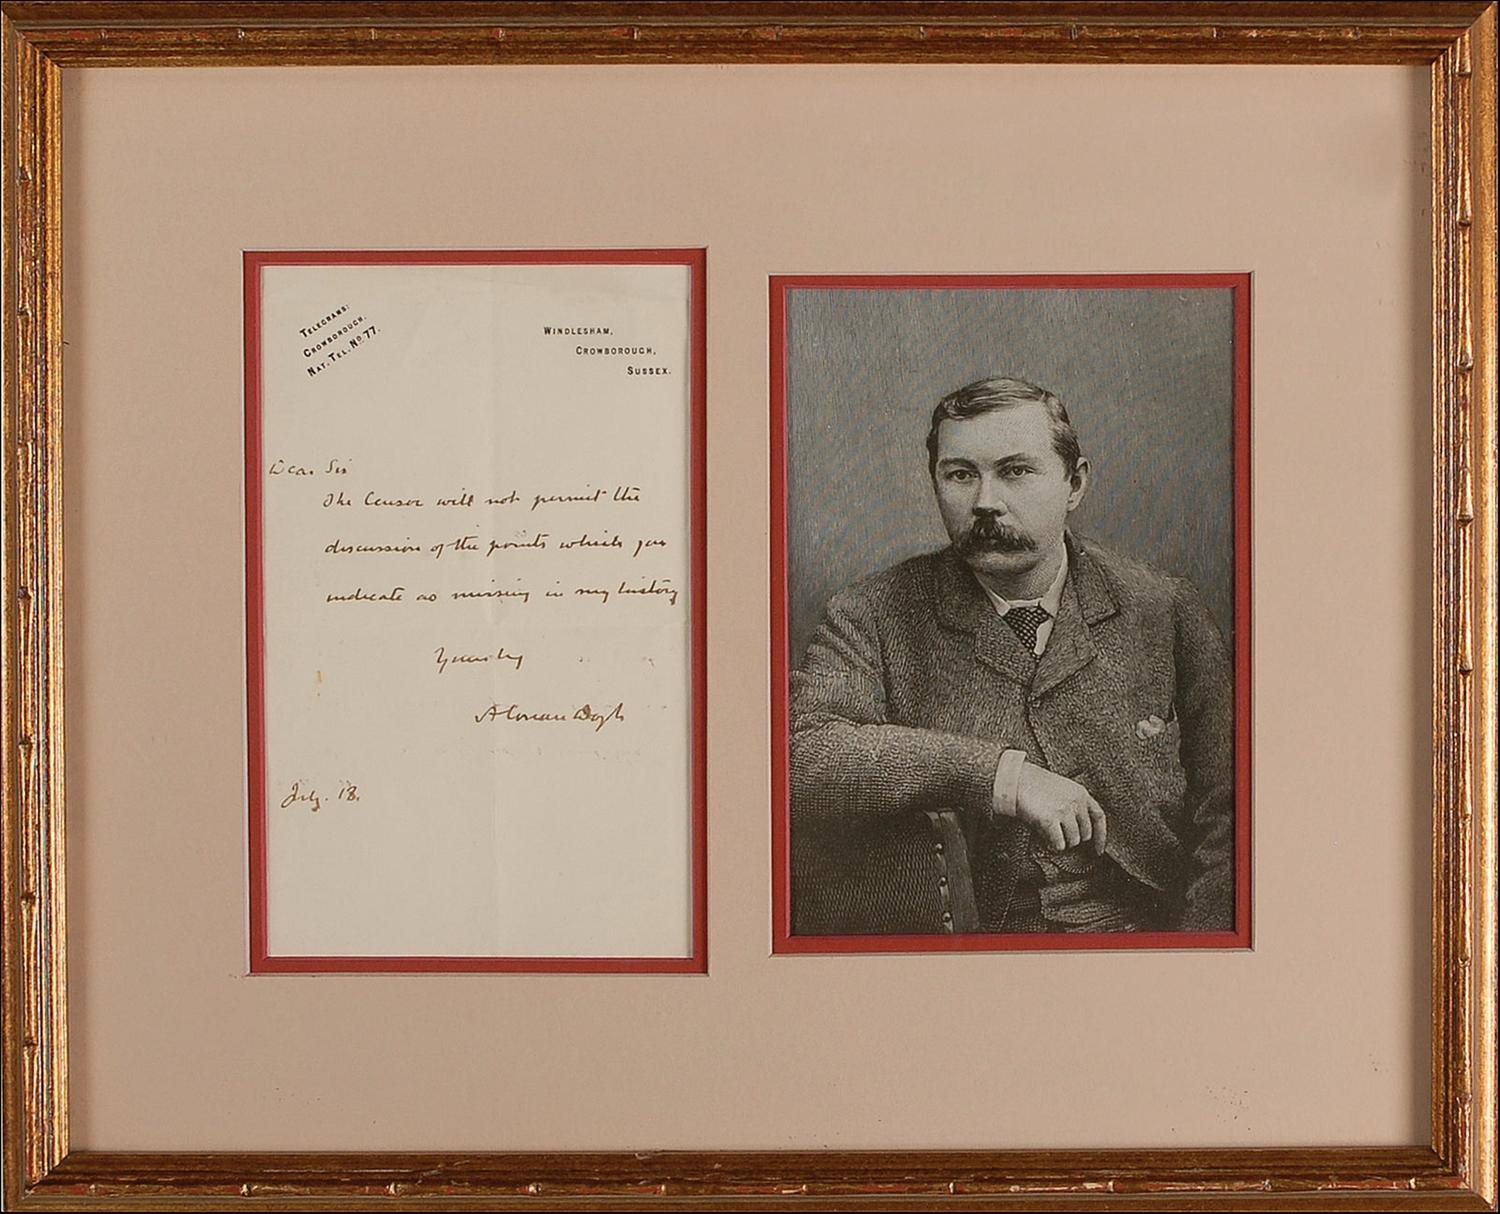 TELEGRAMS:
CROWBOROUGH.
NAT. TEL. No 77.
WINDLESHAM,
CROWBOROUGH,
SUSSEX.
Dear Sir
The Censor will not permit the
discussion of the points which you
indicate as missing in my history
Yours truly
A Conan Doyle
July. 18.